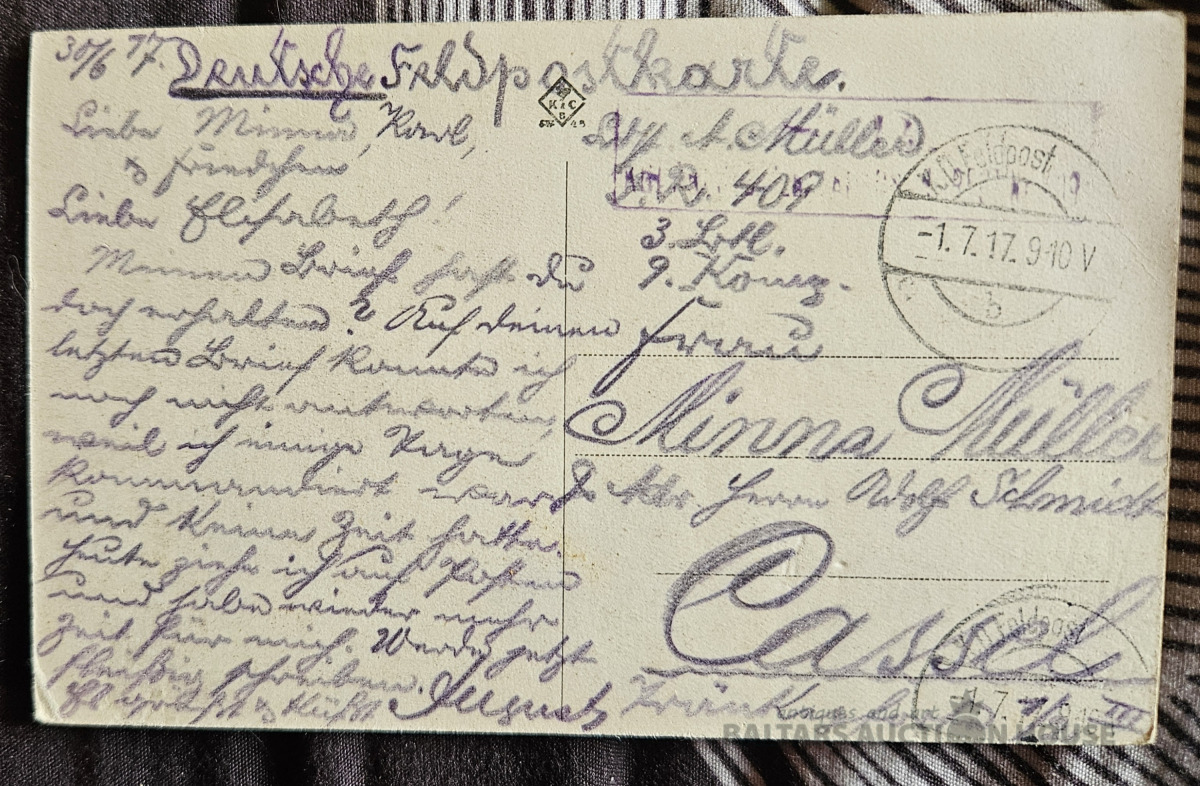 30/6 17.
Deutsche Feldpostkarte.
K & C
B
Liebe Minna, Karl,
& Friedchen
Liebe Elisabeth!
Meinen Brief hast du
doch erhalten? Auf deinen
letzten Brief konnte ich
noch nicht antworten,
weil ich einige Tage
kommandiert war
und keine Zeit hatte.
Heute ziehe ich auf Posten
und habe wieder mehr
Zeit für mich. Werde jetzt
fleißig schreiben.
Es grüßt & küßt August
A. Müller
I.R. 409
3. Batl.
9. Komp.
Frau
Minna Müller
Adr. Herrn Adolf Schmidt
Cassel
K.D. Feldpost
-1.7.17. 9-10 V
b
K.D. Feldpost
BALTARS AUCTION HOUSE